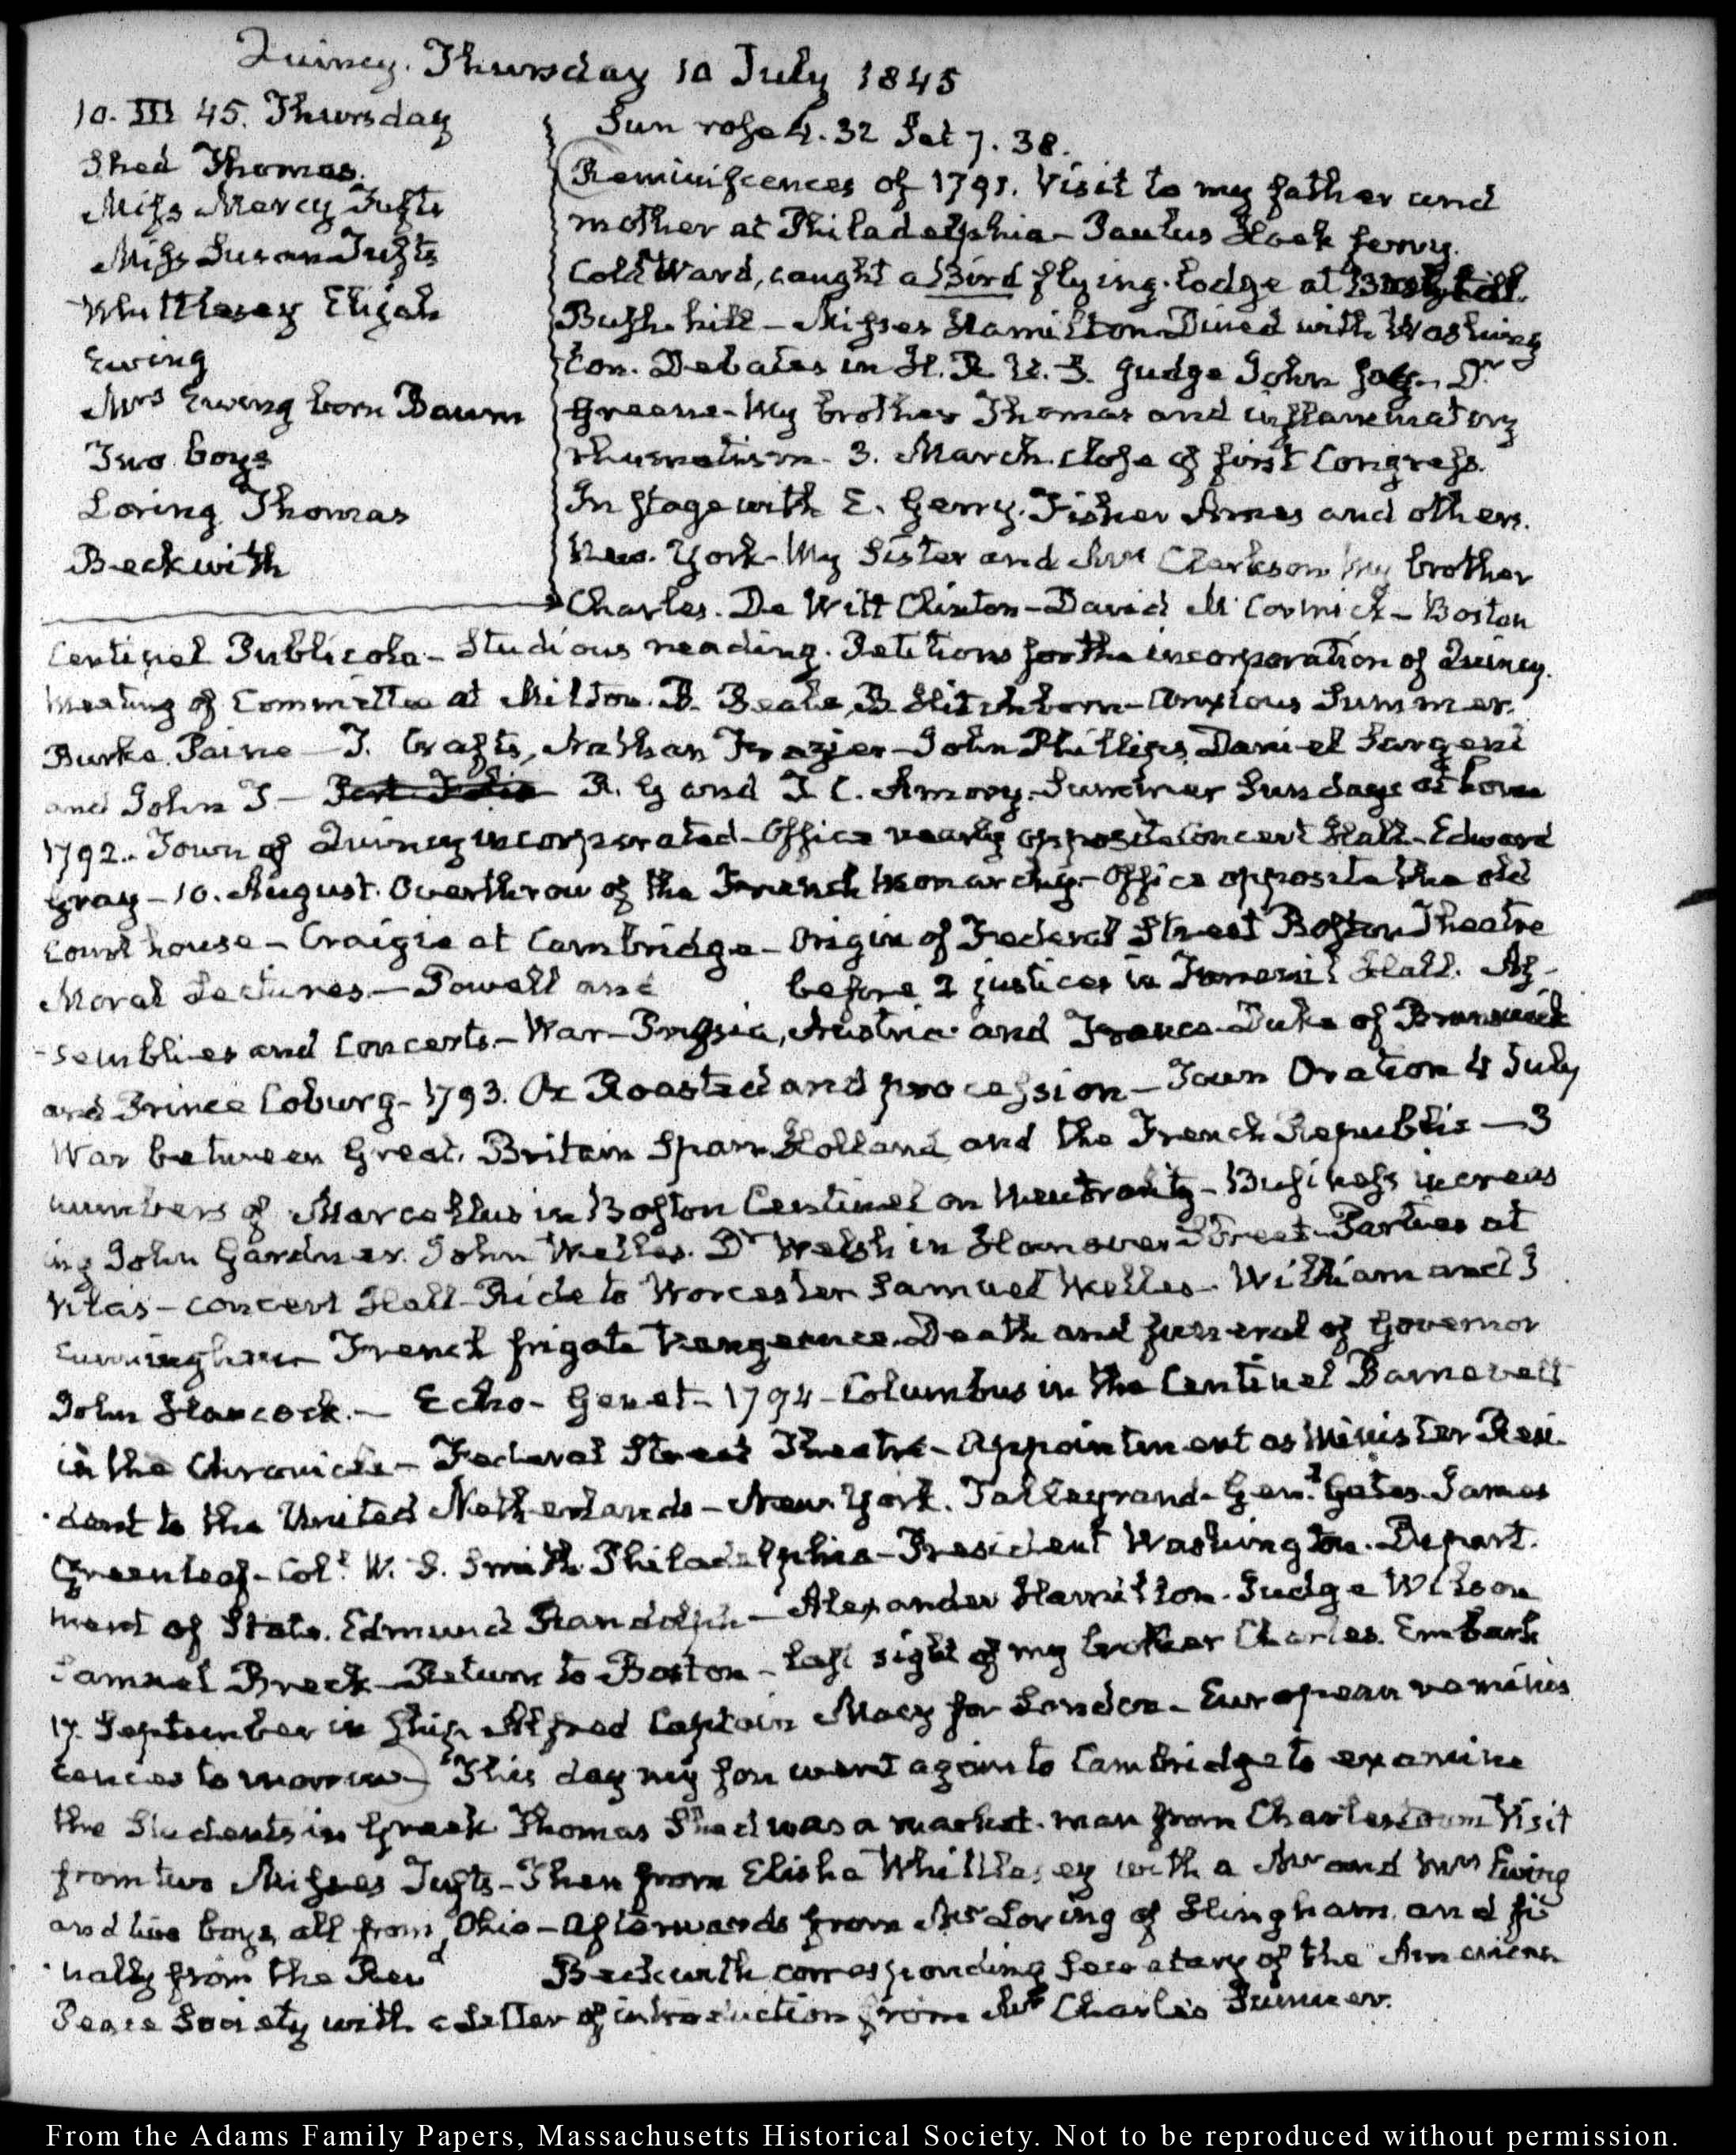 Quincy. Thursday 10 July 1845
10. III 45. Thursday
Shed Thomas.
Miss Mercy Tufts
Miss Susan Tufts
Whittlesey Elijah
Ewing
Mrs Ewing born Baum
Two boys
Loring Thomas
Beckwith
Sun rose 4. 32 Set 7. 38.
(Reminiscences of 1791. Visit to my father and
mother at Philadelphia – Paulus Hook ferry.
Cold Ward, caught a Bird flying. lodge at
Bush hill – Misses Hamilton Dined with Washing
ton. Debates in H. R. U. S. Judge John Jay – Dr
Greene – My brother Thomas and inflammatory
rhumatism – 3. March close of first Congress.
In stage with E. Gerry. Fisher Ames and others.
New. York – My Sister and Mrs Clarkson my brother
Charles. De Witt Clinton – David McCormick – Boston
Centinel Publicola – Studious reading. Petitions for the incorporation of Quincy.
Meeting of Committee at Milton. B. Beale, B. Hitchborn – Anxious Summer.
Burke Paine – T. Crafts, Nathan Frazier – John Phillips, Daniel Sargent
and John T – R. G and T. C. Amory. Summer Sundays at home
1792.. Town of Quincy incorporated – Office nearly opposite Concert Hall – Edward
Gray – 10. August. Overthrow of the French monarchy – Office opposite the old
Court house – Craigie at Cambridge – Origin of Federal Street Boston Theatre
Moral Lectures. – Powell and before 2 justices in Faneuil Hall. As-
-semblies and Concerts. – War – Prussia, Austria and France. Duke of Brunswick
and Prince Coburg – 1793. Ox Roasted and procession – Town Oration 4 July
War between Great Britain Spain Holland and the French Republic – 3
numbers of Marcellus in Boston Centinel on Neutrality – Business increas
ing John Gardner. John Welles. Dr Welsh in Hanover Street – Parties at
Vilas – concert Hall – Ride to Worcester Samuel Welles – William and J
Cunningham French frigate Vengeance. Death and funeral of Governor
John Hancock. – Echo – Genet – 1794 – Columbus in the Centinel Barneveld
in the Chronicle – Federal Street Theatre – appointment as Minister Resi-
-dent to the United Netherlands – New. York. Talleyrand – Genl. Gates. James
Greenleaf – Coll. W. S. Smith. Philadelphia – President Washington. Depart.
ment of State. Edmund Randolph – Alexander Hamilton. Judge Wilson
Samuel Breck – Return to Boston – last sight of my brother Charles. Embark
17. September in ship Alfred Captain Macy for London – European reminis
cences to morrow) This day my son went again to Cambridge to examine
the Students in Greek Thomas Shed was a market. man from Charlestown Visit
from two Misses Tufts – Then from Elisha Whittlesey with a Mr and Mrs Ewing
and two boys, all from Ohio – afterwards from Mr Loring of Hingham, and fi
-nally from the Revd Beckwith corresponding Secretary of the American
Peace Society with a Letter of introduction from Mr Charles Sumner.
From the Adams Family Papers, Massachusetts Historical Society. Not to be reproduced without permission.